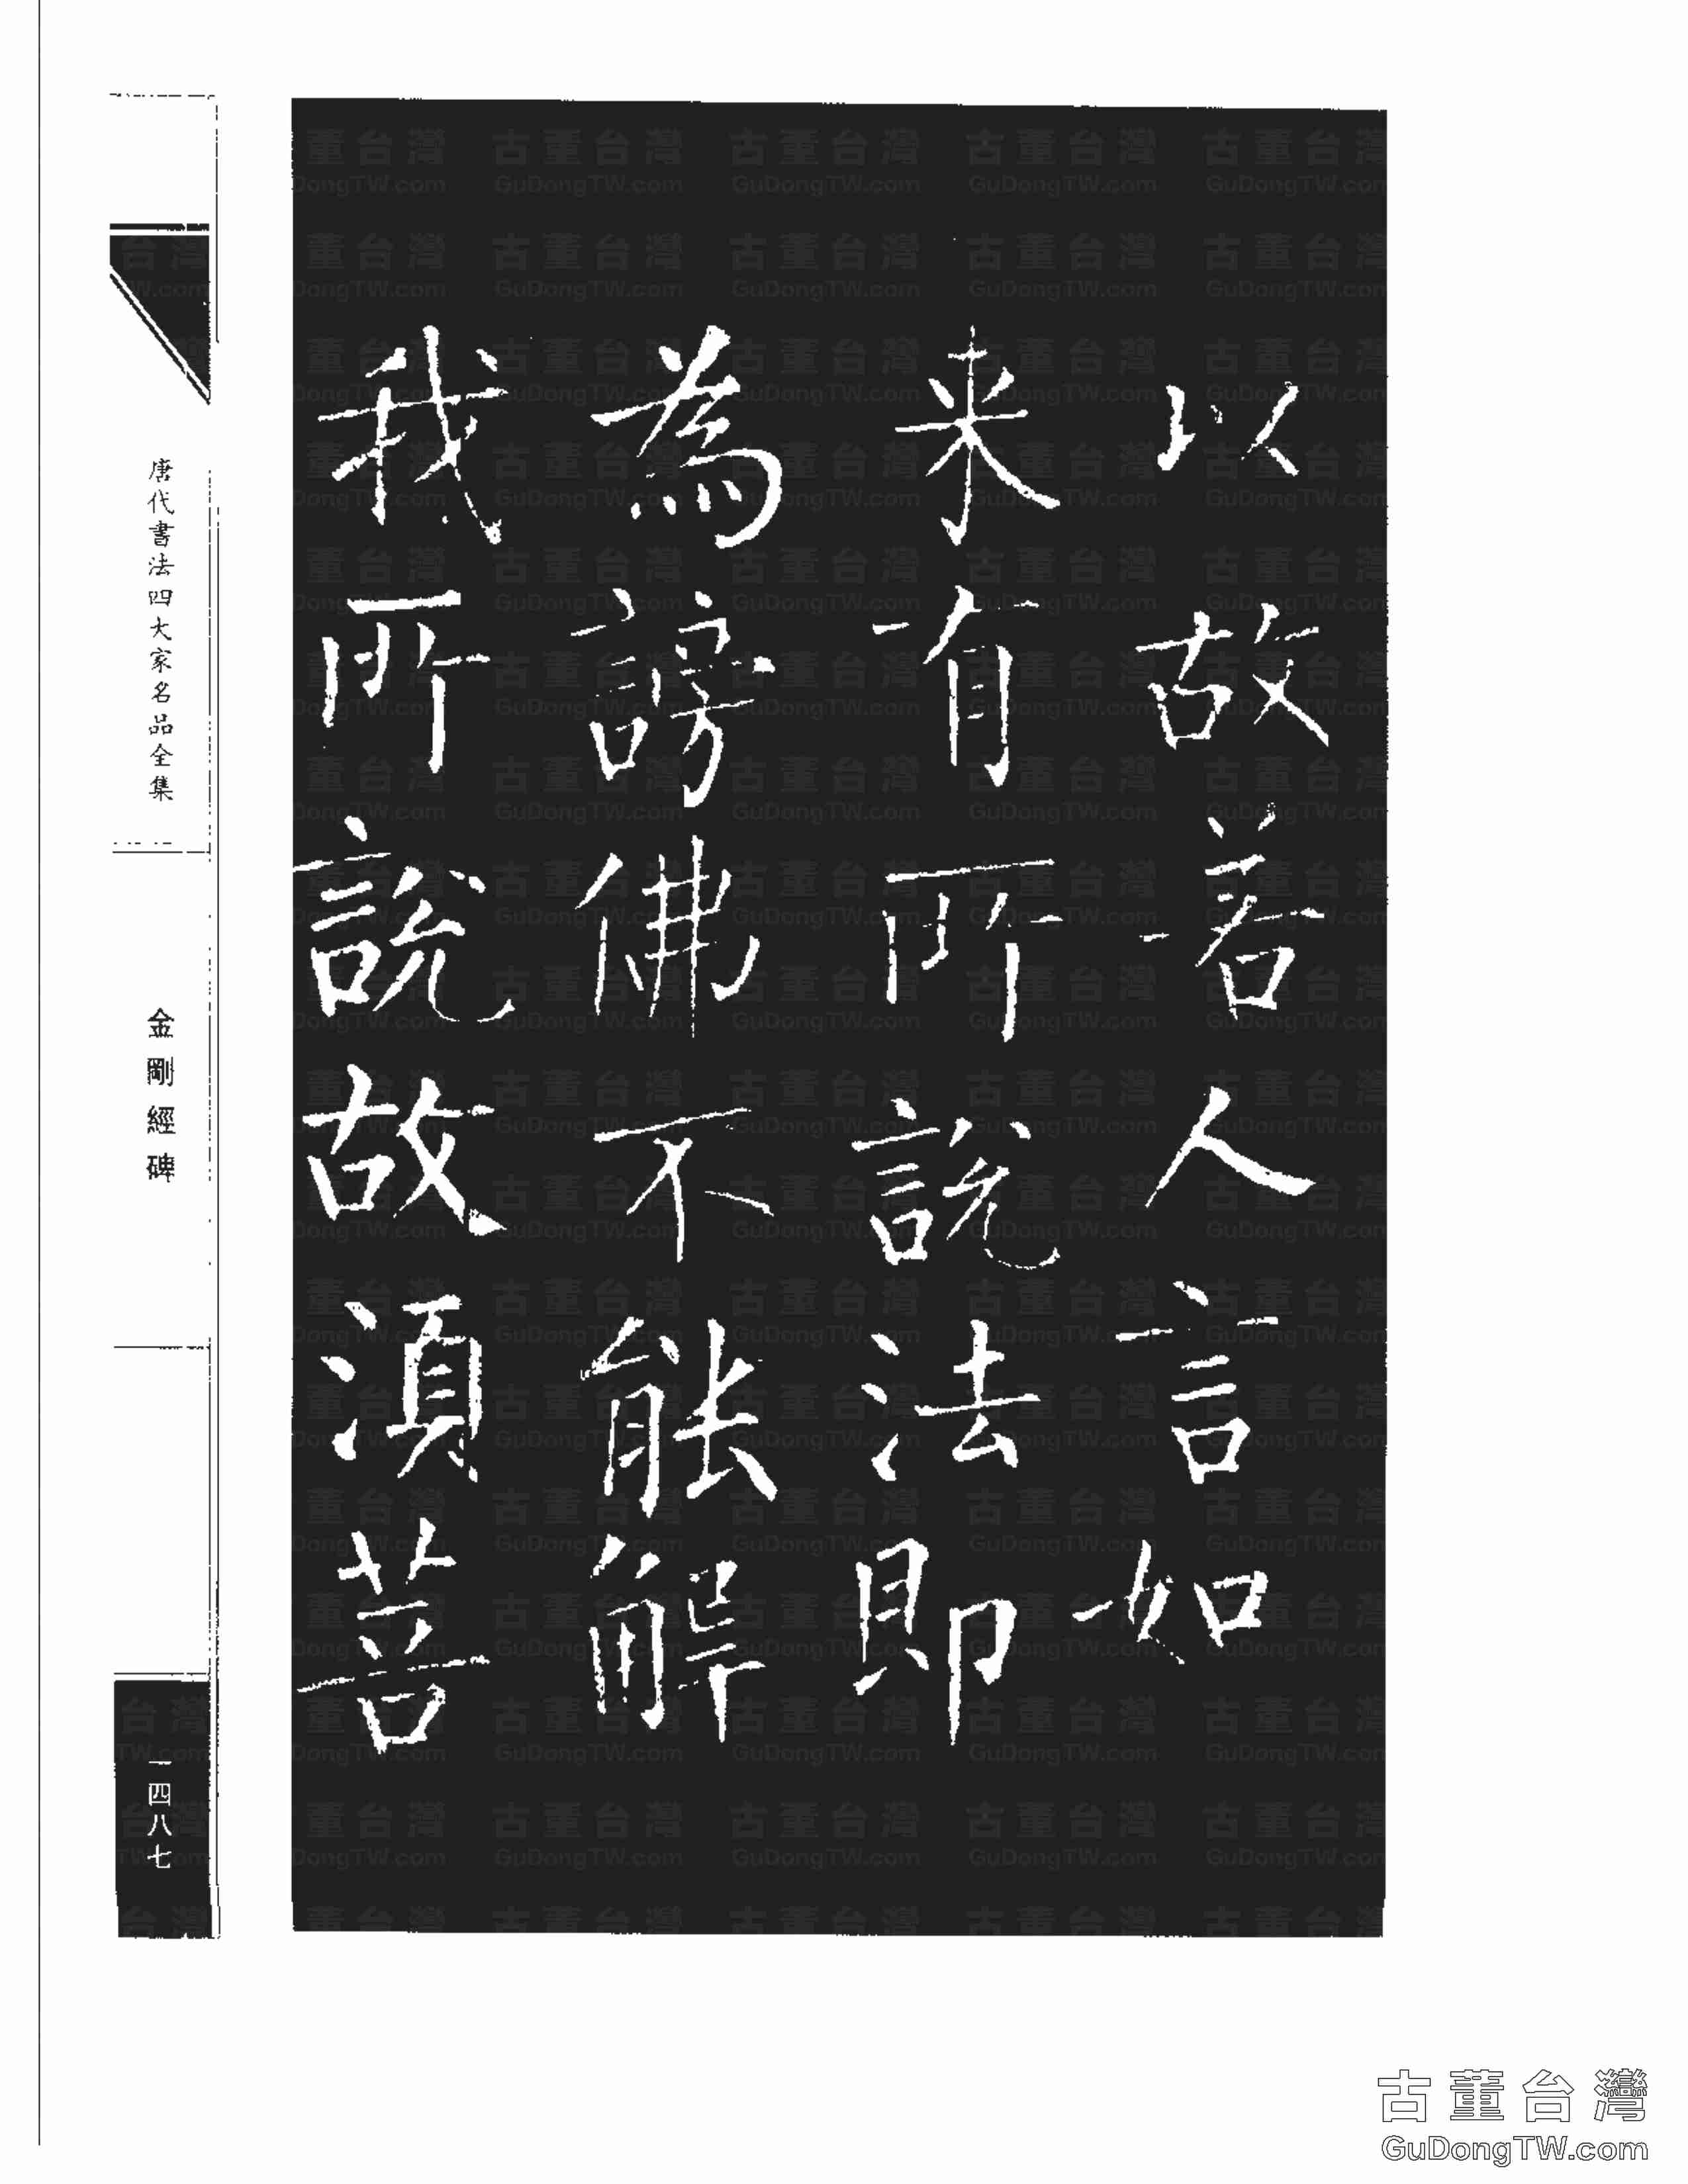 以故若人言如
来有所說法即
為謗佛不能解
我所說故湏菩
唐代書法四大家名品全集
金剛經碑
一四八七
古董台灣
GuDongTW.com